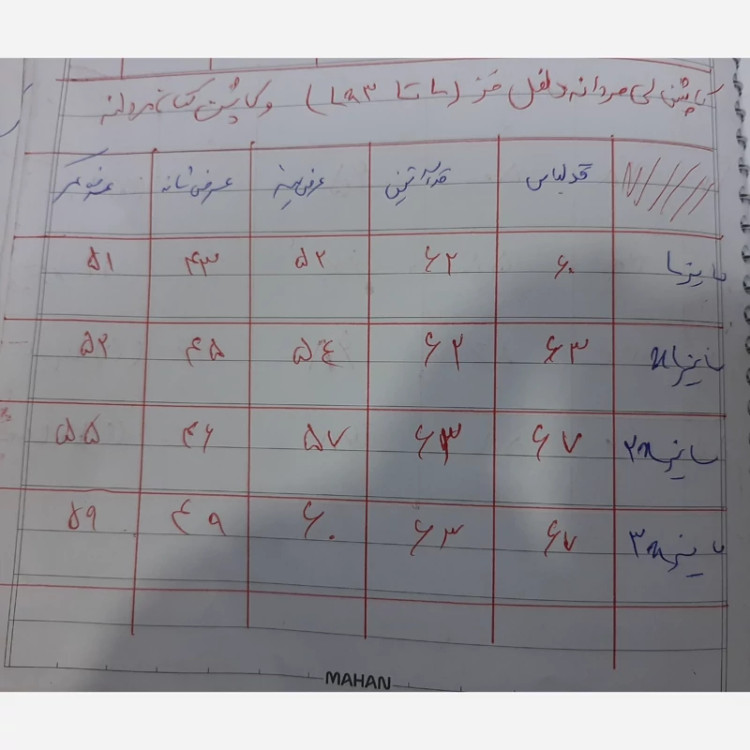 کاپشن لی مردانه داخل خز (L تا 3XL) و کاپشن کتان مردانه
قد لباس قد آستین عرض سینه عرض شانه عرض کمر
سایز L ۶۰ ۶۲ ۵۲ ۴۳ ۵۱
سایز XL ۶۳ ۶۲ ۵۴ ۴۵ ۵۲
سایز ۲XL ۶۷ ۶۳ ۵۷ ۴۶ ۵۵
سایز ۳XL ۶۷ ۶۳ ۶۰ ۴۹ ۵۹
MAHAN